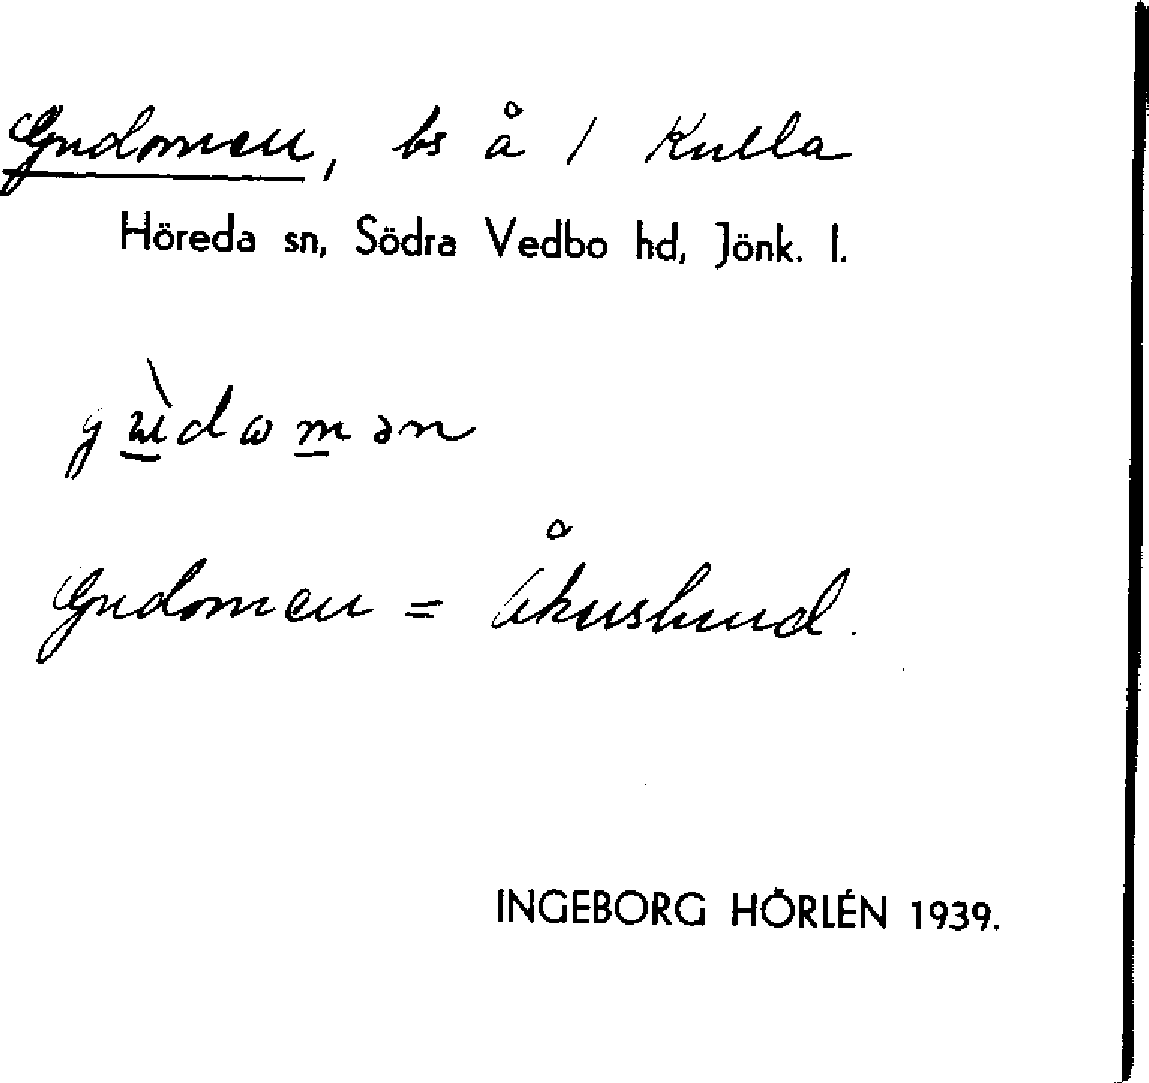 Gudomen, bs å 1 Kulla
Höreda sn, Södra Vedbo hd, Jönk. l.
Gudomen = Åkuslund.
INGEBORG HÖRLÉN 1939.